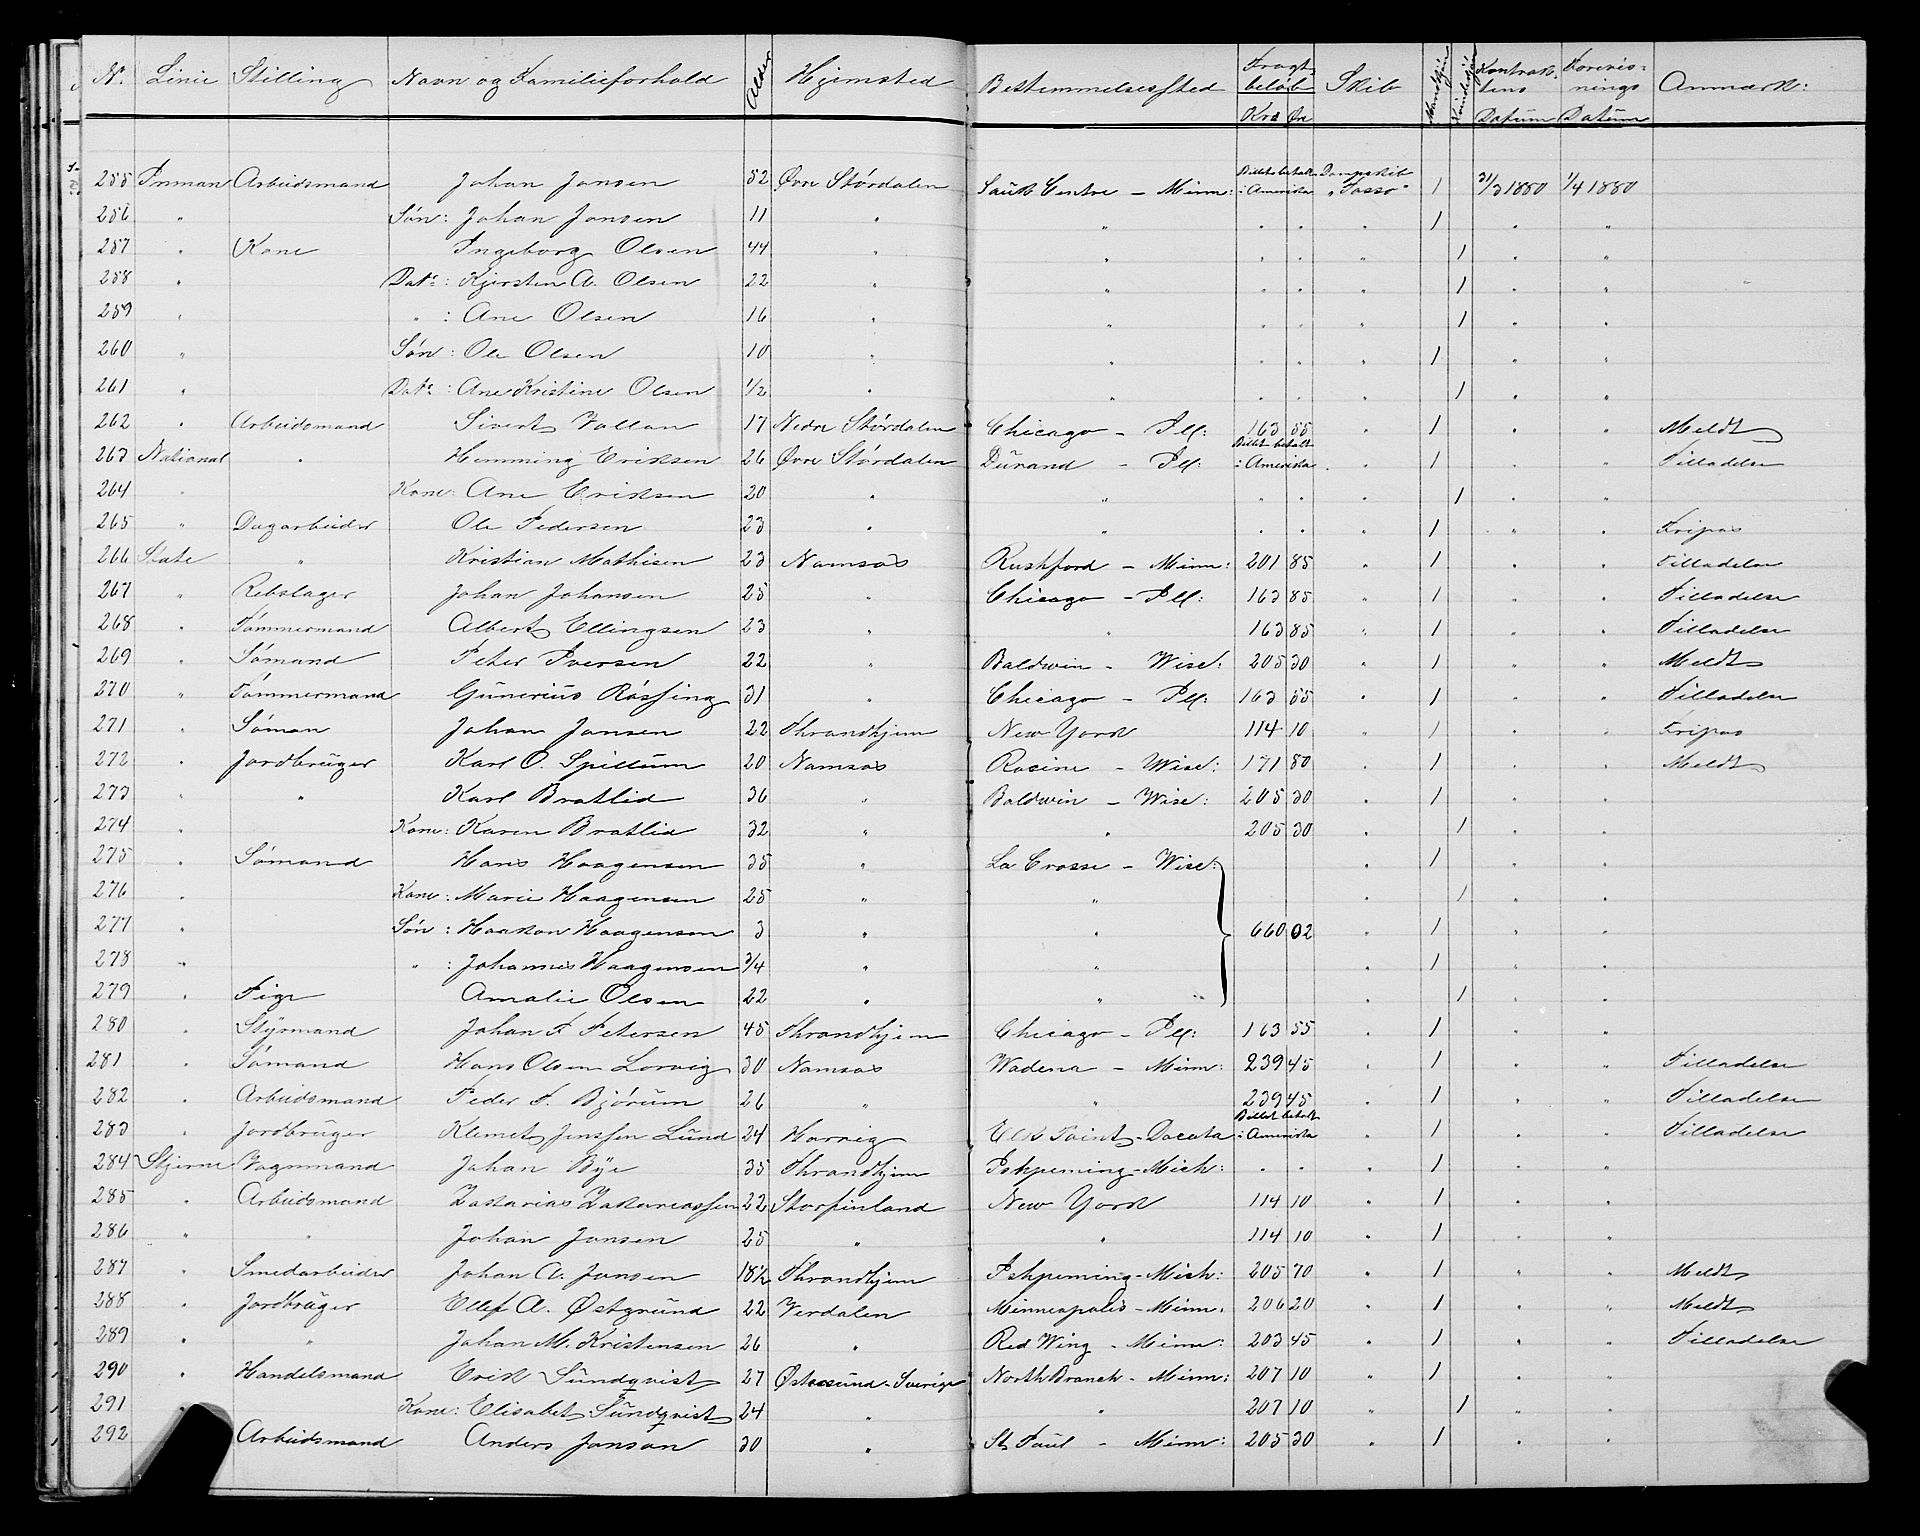 Nr. Linie Stilling Navn og Familieforhold Alder Hjemsted Bestemmelsessted Fragtbeløb Kr Øre Skib Mandkjøn Kvindekjøn Kontraktens Datum Forevisnings Datum Anmærk:
255 Inman Arbeidsmand Johan Jonsen 52 Øvre Størdalen Sauk Centre - Minn: Billet betalt i Amerika Dampskib "Tasso" 1 31/3 1880 1/4 1880
256 " Søn: Johan Jonsen 11 " " " " 1 " "
257 " Kone Ingeborg Olsen 44 " " " " " 1 " "
258 " Datr: Kjersten A. Olsen 22 " " " " " 1 " "
259 " " : Ane Olsen 16 " " " " " 1 " "
260 " Søn: Ole Olsen 10 " " " " " 1 " "
261 " Datr: Ane Kristine Olsen 1/2 " " " " " 1 " "
262 " Arbeidsmand Sivert Vollan 17 Nedre Størdalen Chicago - Ill: 163 55 " 1 " " Meldt
263 National " Hemming Eriksen 26 Øvre Størdalen Durand - Ill: Billet betalt i Amerika " 1 " " Tilladelse
264 " Kone: Ane Eriksen 20 " " " " " 1 " "
265 " Dagarbeider Ole Pedersen 23 " " " " " 1 " " Fripas
266 State " Kristian Mathisen 23 Namsos Rushford - Minn: 201 85 " 1 " " Tilladelse
267 " Rebslager Johan Johansen 25 " Chicago - Ill: 163 85 " 1 " " Tilladelse
268 " Tømmermand Albert Ellingsen 23 " " 163 85 " 1 " " Tilladelse
269 " Sømand Peter Iversen 22 " Baldwin - Wisc: 205 30 " 1 " " Meldt
270 " Tømmermand Gunerius Røssing 31 " Chicago - Ill: 163 55 " 1 " " Tilladelse
271 " Søman Johan Jonsen 22 Throndhjem New York 114 10 " 1 " " Fripas
272 " Jordbruger Karl O. Spillum 20 Namsos Racine - Wisc: 171 80 " 1 " " Meldt
273 " " Karl Bratlid 36 " Baldwin - Wisc: 205 30 " 1 " "
274 " Kone: Karen Bratlid 32 " " 205 30 " 1 " "
275 " Sømand Hans Haagensen 35 " La Crosse - Wisc: " 1 " "
276 " Kone: Marie Haagensen 25 " " " 1 " "
277 " Søn: Haakon Haagensen 3 " " 660 02 " 1 " "
278 " " : Johannes Haagensen 3/4 " " " 1 " "
279 " Pige Amalie Olsen 22 " " " 1 " "
280 " Styrmand Johan F Petersen 45 Throndhjem Chicago - Ill: 163 55 " 1 " "
281 " Sømand Hans Olsen Lorvig 30 Namsos Wadena - Minn: 239 45 " 1 " " Tilladelse
282 " Arbeidsmand Peder P. Bjørum 26 " " 239 45 " 1 " " Tilladelse
283 " Jordbruger Klemet Jenssen Lund 24 Horvig Elk Point - Dacota Billet betalt i Amerika " 1 " " Tilladelse
284 Stjerne Vognmand Johan Bye 35 Throndhjem Ishpeming - Mich: " " " 1 " "
285 " Arbeidsmand Zakarias Zakariassen 22 Storfinland New York 114 10 " 1 " "
286 " " Johan Jonsen 25 " " 114 10 " 1 " "
287 " Smedarbeider Johan A. Jonsen 18½ Throndhjem Ishpeming - Mich: 205 70 " 1 " " Meldt
288 " Jordbruger Ellef A. Østgrund 22 Verdalen Minneapolis - Minn: 206 20 " 1 " " Meldt
289 " " Johan M. Kristensen 26 " Red Wing - Minn: 203 45 " 1 " " Tilladelse
290 " Handelsmand Erik Sundqvist 27 Østersund - Sverige North Branch - Minn: 207 10 " 1 " "
291 Kone: Elisabet Sundqvist 24 " " 207 10 " 1 " "
292 Arbeidsmand Anders Jonson 30 " St Paul - Minn: 205 30 " 1 " "